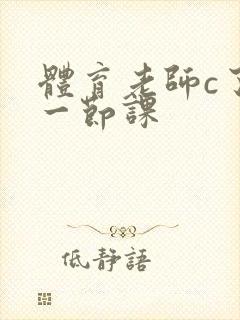 體育老師c了
一節課
低靜語